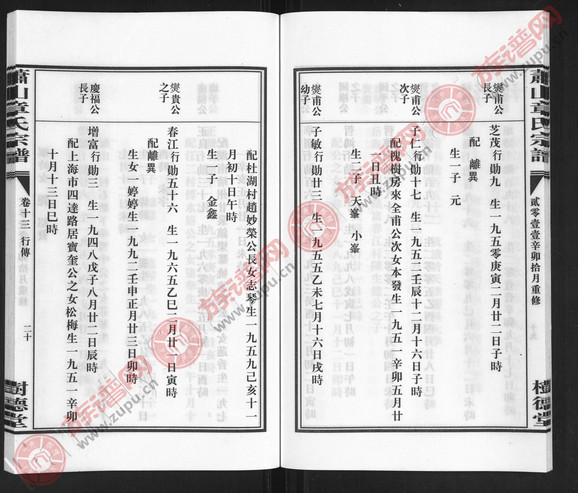 蕭山章氏宗譜
貳零壹壹辛卯拾月重修
樹德堂
燮甫公長子
芝茂行勛九 生一九五零庚寅二月廿二日子時
配 離異
生一子 元
燮甫公次子
子仁行勛十七 生一九五二壬辰十二月十六日子時
配槐樹房來全甫公次女本發生一九五一辛卯五月廿
一日丑時
生二子 天峯 小峯
燮甫公幼子
子敏行勛廿三 生一九五五乙未七月十六日戌時
配杜湖村趙妙榮公長女志琴生一九五九己亥十一
月初十日午時
生一子 金鑫
燮貴公之子
春江行勛五十六 生一九六五乙巳二月廿一日寅時
配 離異
生女一 婷婷生一九九二壬申正月廿三日卯時
慶福公長子
增富行勛三 生一九四八戊子八月廿二日辰時
配上海市四達路居寶奎公之女松梅生一九五一辛卯
十月十三日巳時
蕭山章氏宗譜
卷十三 行傳
二十
樹德堂
族谱网
www.zupu.cn